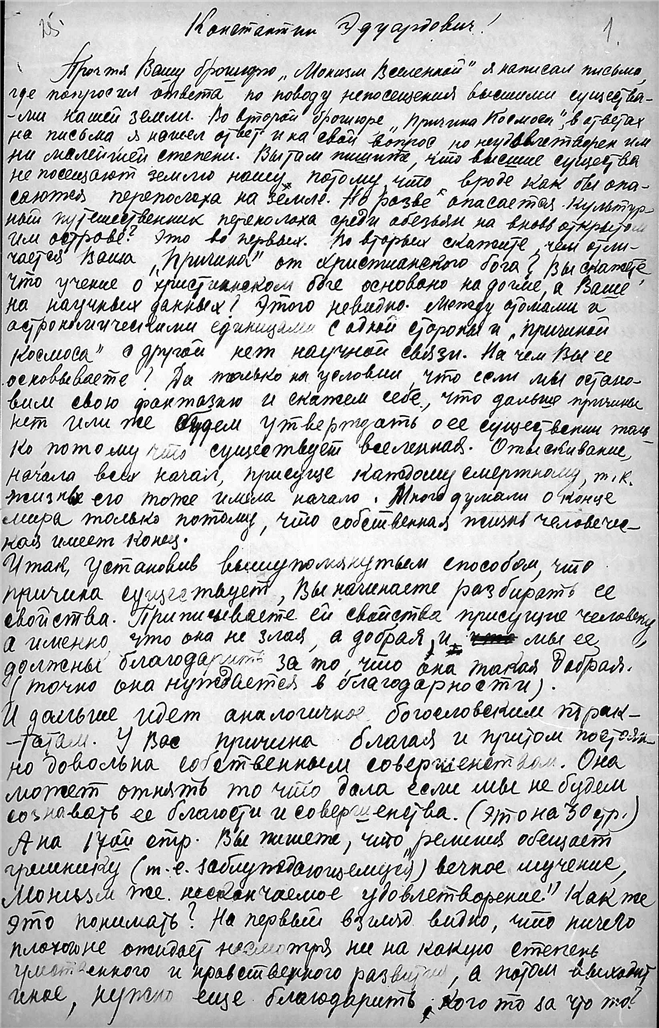 25
Константин Эдуардович!
1.
Прочтя Вашу брошюру „Монизм Вселенной“ я написал письмо,
где попросил ответа по поводу непосещения высшими существа-
-ми нашей земли. Во второй брошюре „Причина Космоса“, в ответах
на письма я нашел ответ и на свой вопрос, но неудовлетворен им
ни малейшей степени. Вы там пишите, что высшие существа
не посещают землю нашу, потому что вроде как бы опа-
саются переполоха на земле. Но разве опасается культур-
ный путешественник переполоха среди обезьян на вновь открытом
им острове? Это во первых. Во вторых скажите чем отли-
чается Ваша „Причина“ от христианского бога? Вы скажете
что учение о христианском боге основано на догме, а Ваше
на научных данных? Этого невидно. Между атомами и
астрономическими единицами с одной стороны и „причиной
космоса“ с другой нет научной связи. На чем Вы ее
основываете? Да только на условии, что если мы остано-
вим свою фантазию и скажем себе, что дальше причины
нет или же будем утверждать о ее существении толь-
ко потому что существует вселенная. Отыскивание
начала всех начал, присуще каждому смертному, т.к.
жизнь его тоже имела начало. Много думали о конце
мира только потому, что собственная жизнь человечес-
кая имеет конец.
Итак, установив вышеупомянутым способом, что
причина существует, Вы начинаете разбирать ее
свойства. Приписываете ей свойства присущие человеку,
а именно, что она не злая, а добрая, и мы ее
должны благодарить за то, что она такая добрая.
(точно она нуждается в благодарности).
И дальше идет аналогичное богословским трак-
-татам. У Вас причина благая и притом постоян-
но довольна собственным совершенством. Она
может отнять то что дала если мы не будем
сознавать ее благости и совершенства. (Это на 30 стр.)
А на 17ой стр. Вы пишете, что „религия обещает
грешнику (т.е. заблуждающемуся) вечное мучение,
Монизм же нескончаемое удовлетворение“ Как же
это понимать? На первый взгляд видно, что ничего
плохого не ожидает несмотря ни на какую степень
умственного и нравственного развития, а потом выходит
иное, нужно еще благодарить кого то за что то?